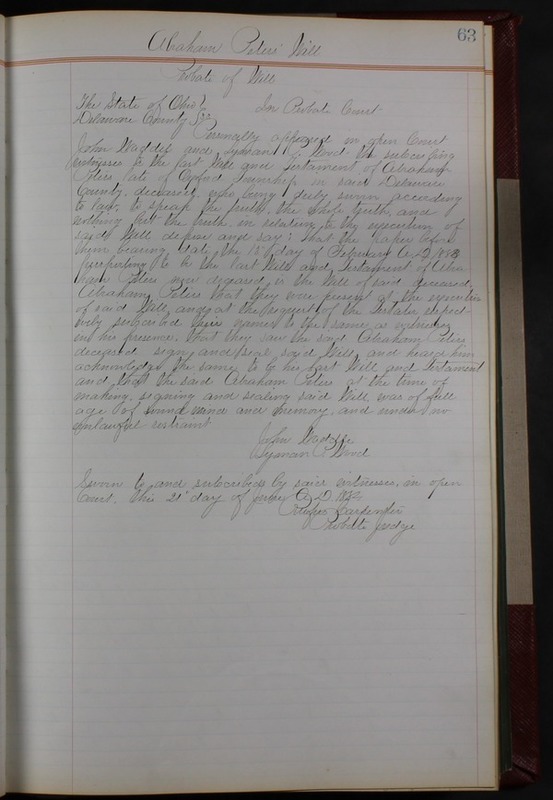 63
Abraham Peters' Will
Probate of Will
The State of Ohio } In Probate Court
Delaware County } SS
Personally appeared in open Court
John and Lyman the subscribing
witnesses to the last Will and Testament of Abraham
Peters late of Oxford Township in said Delaware
County, deceased, who being duly sworn according
to law, to speak the truth, the whole truth, and
nothing but the truth, in relation to the execution of
said Will depose and say; that the paper before
them bearing date the day of February A.D.
purporting to be the last Will and Testament of Abra
ham Peters now deceased is the Will of said deceased
Abraham Peters that they were present at the execution
of said Will, and at the request of the Testator respect
ively subscribed their names to the same as witnesses
in his presence, that they saw the said Abraham Peters
deceased sign and seal said Will, and heard him
acknowledge the same to be his last Will and Testament
and that the said Abraham Peters at the time of
making, signing and sealing said Will, was of full
age of sound mind and memory, and under no
unlawful restraint
John
Lyman
Sworn to and subscribed by said witnesses, in open
Court, this 21 day of June A.D.
Carpenter
Probate Judge